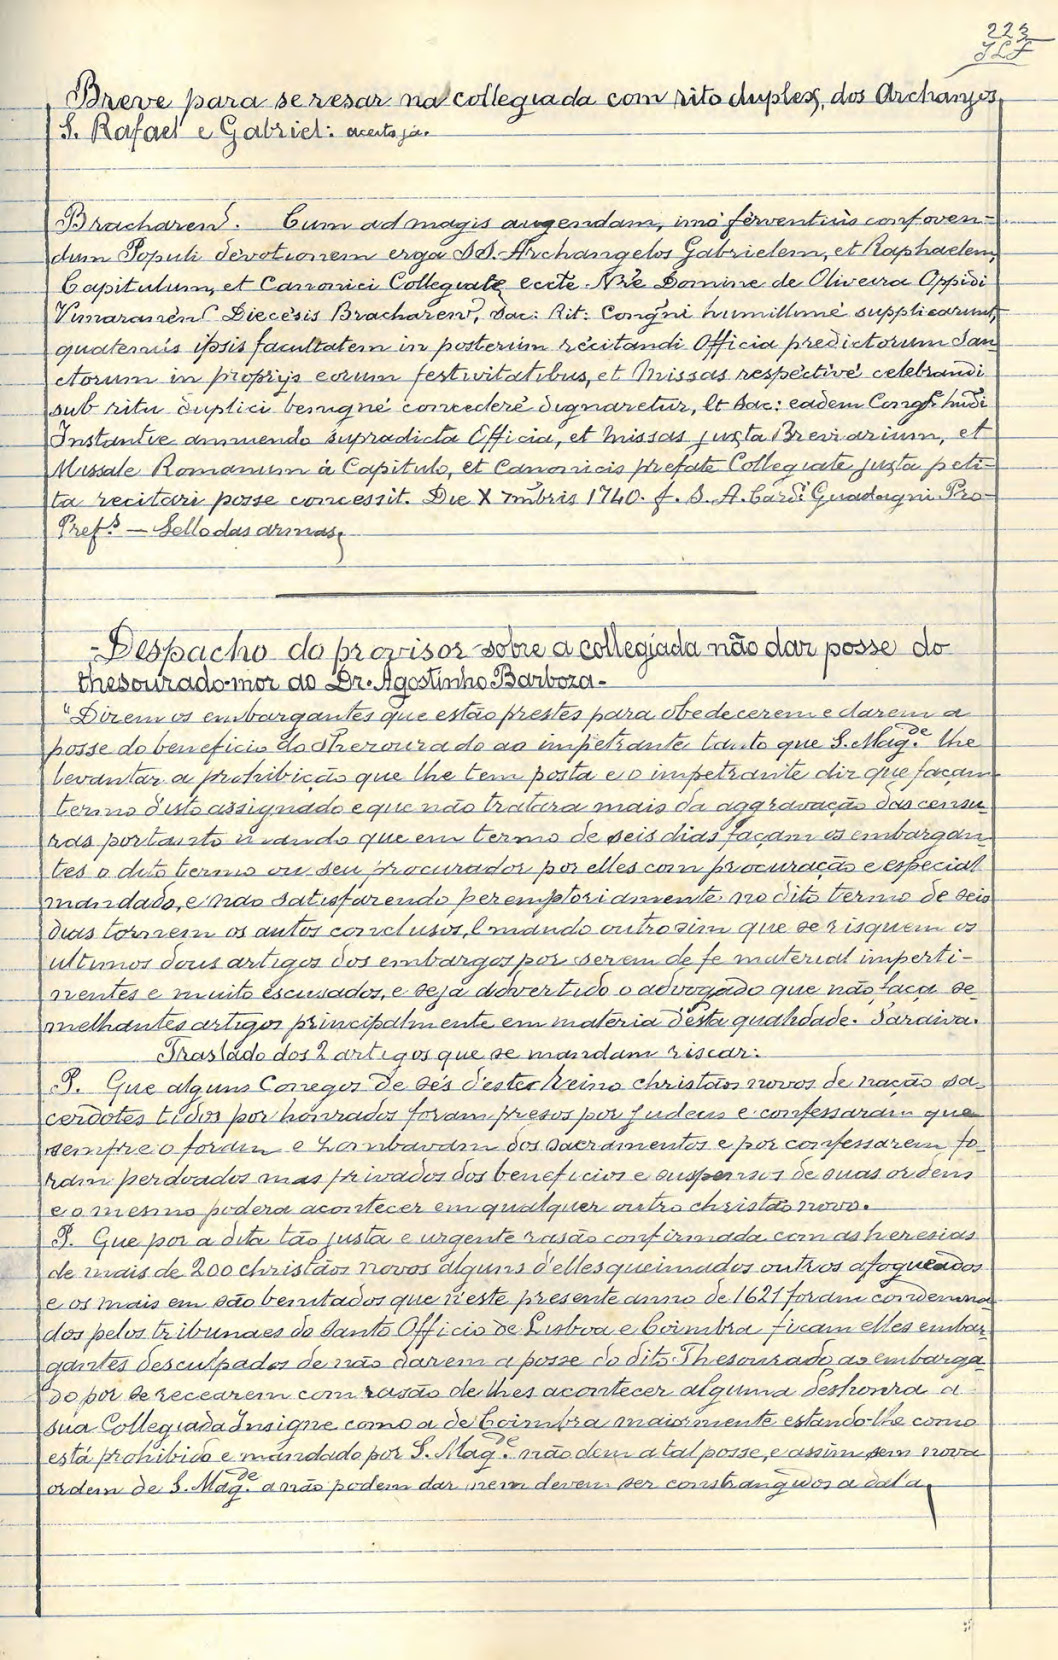 223
JLF
Breve para se resar na collegiada com rito duplex, dos Archanjos
S. Rafael e Gabriel:
Bracharen^s. Cum ad magis augendam, imó ferventiùs confoven-
dum Populi devotionem erga SS. Archangelos Gabrielem, et Raphaelem
Capitulum, et Canonici Collegiate eccte Nrê Domine de Oliveira Oppidi
Vimaranen^s Diecésis Bracharen^s, Sac: Rit: Congni humillimé supplicarunt,
quatenùs ipsis facultatem in posterùm récitandi Officia predictorum San
ctorum in proprijs eorum festivitatibus, et Missas respéctivé celebrandi
sub ritu duplici benigné concederé dignaretur, Et Sac: eadem Cong^e hudi
Instantie annuendo supradicta Officia, et Missas juxta Breviarium, et
Missale Romanum á Capitulo, et Canonicis prefate Collegiate juxta peti-
ta recitari posse concessit. Die X 7mbris 1740. f. S. A. Card^l Guadagni Pro-
Pref.^s — Sello das armas,
- Despacho do provisor sobre a collegiada não dar posse do
thesourado-mor ao Dr. Agostinho Barboza -
"Dizem os embargantes que estão prestes para obedecerem e darem a
posse do beneficio do Thezourado ao impetrante tanto que S. Mag.^de lhe
levantar a prohibição que lhe tem posta e o impetrante diz que façam
termo d'isto assignado e que não tratara mais da aggravação das censu-
ras portanto mando que em termo de seis dias façam os embargan-
tes o dito termo ou seu procurador por elles com procuração e especial
mandado, e não satisfazendo peremptoriamente no dito termo de seis
dias tornem os autos conclusos, E mando outrosim que se risquem os
ultimos dous artigos dos embargos por serem de fe material imperti-
nentes e muito escusados, e seja advertido o advogado que não faça se-
melhantes artigos principalmente em materia d'esta qualidade. Saraiva.
Traslado dos 2 artigos que se mandam riscar:
P. Que alguns Conegos de Sés d'este Reino christãos novos de nação sa-
cerdotes tidos por honrados foram presos por judeus e confessaram que
sempre o foram e zombavam dos sacramentos e por confessarem fo-
ram perdoados mas privados dos beneficios e suspensos de suas ordens
e o mesmo podera acontecer em qualquer outro christão novo.
P. Que por a dita tão justa e urgente rasão confirmada com as heresias
de mais de 200 christãos novos alguns d'elles queimados outros afogueados
e os mais em são benitados que n'este presente anno de 1621 foram condemna-
dos pelos tribunaes do Santo Officio de Lisboa e Coimbra ficam elles embar-
gantes desculpados de não darem a posse do dito Thesourado ao embarga-
do por se recearem com rasão de lhes acontecer alguma deshonra a
sua Collegiada Insigne como a de Coimbra maiormente estando-lhe como
está prohibido e mandado por S. Mag.^de não dem a tal posse, e assim sem nova
ordem de S. Mag.^de a não podem dar nem devem ser constrangidos a dal a,